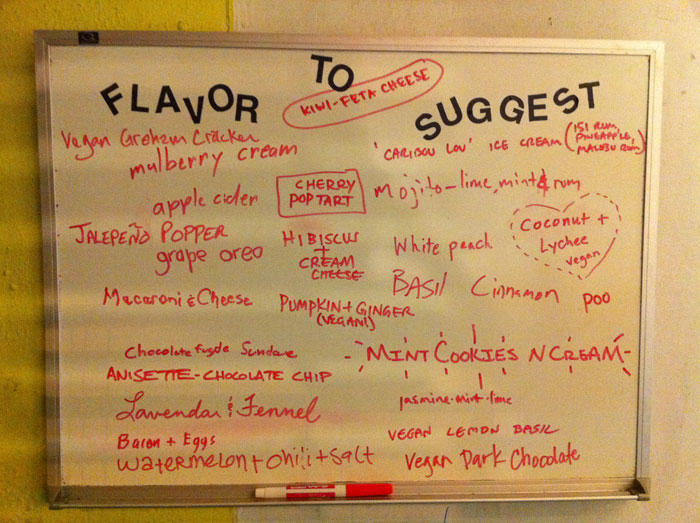 FLAVOR TO SUGGEST
KIWI-FETA CHEESE
Vegan Graham Cracker
mulberry cream
apple cider
CHERRY
POP TART
JALEPEÑO POPPER
grape oreo
HIBISCUS
+
CREAM
CHEESE
Macaroni & Cheese
PUMPKIN + GINGER
(VEGAN!)
Chocolate Fugde Sundae
ANISETTE-CHOCOLATE CHIP
Lavendar & Fennel
Bacon + Eggs
Watermelon + Chili + Salt
'CARIBOU LOU' ICE CREAM (151 RUM,
PINEAPPLE,
MALIBU RUM)
Mojito-lime, mint & rum
White peach
Coconut +
Lychee
vegan
BASIL
Cinnamon
POO
MINT COOKIES N CREAM
jasmine-mint-lime
VEGAN LEMON BASIL
Vegan Dark Chocolate